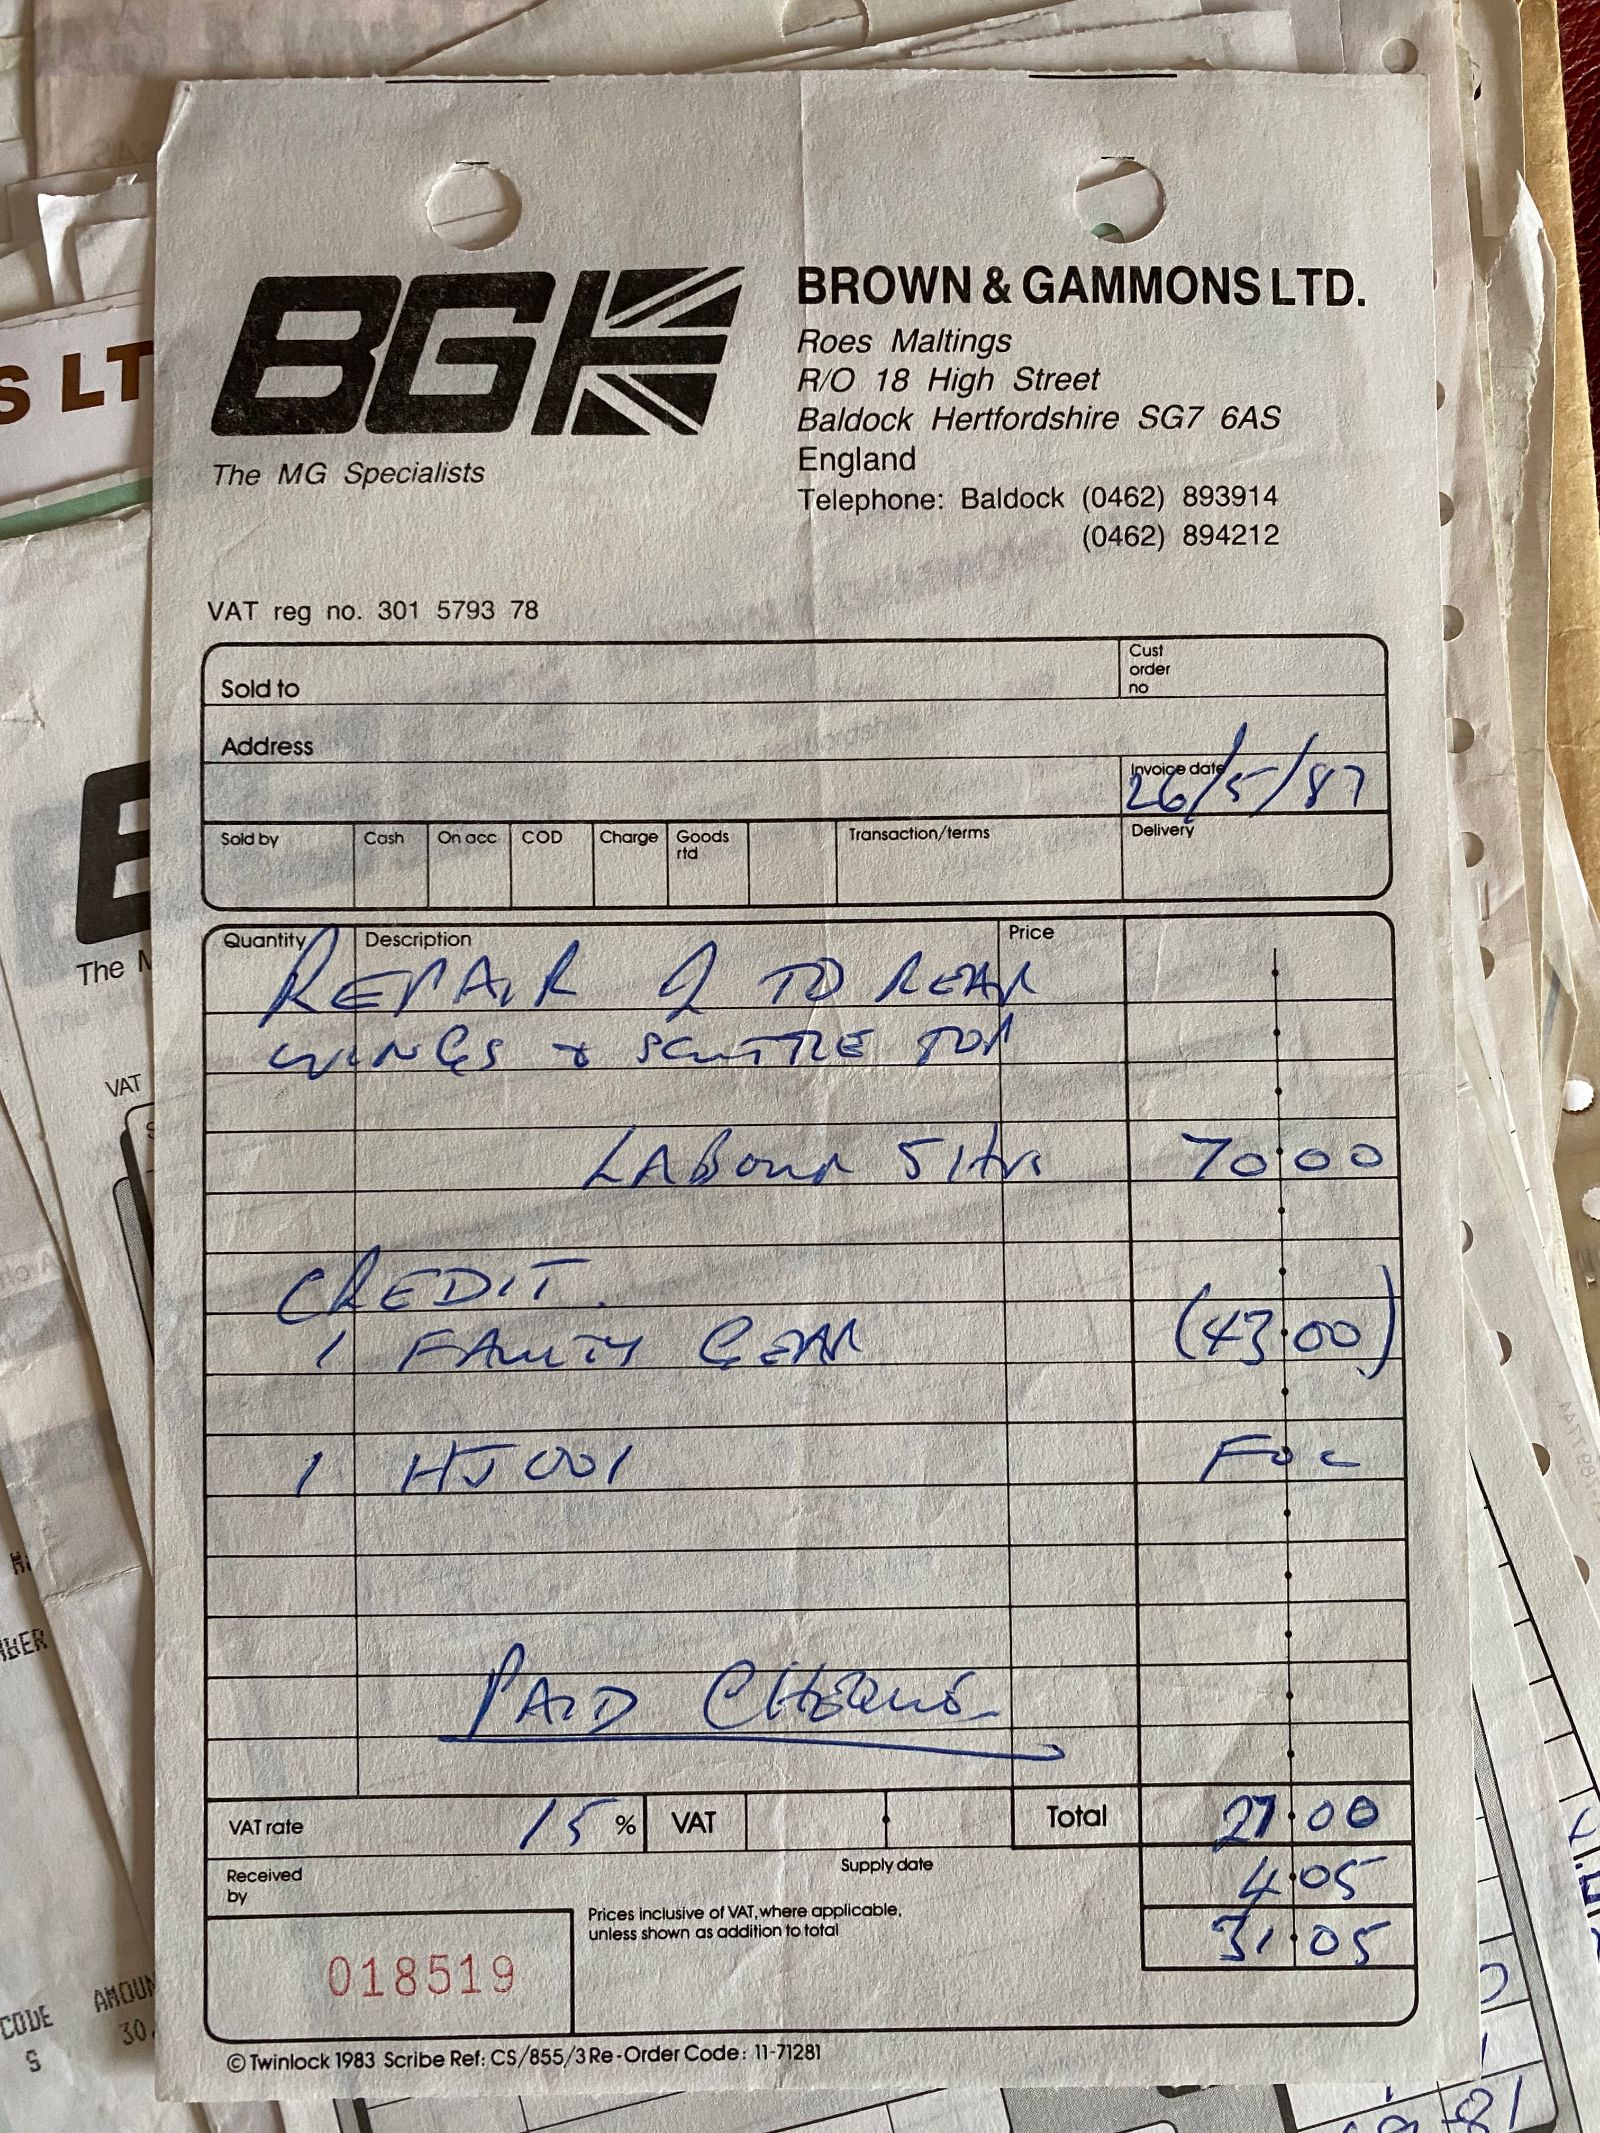 BG
BROWN & GAMMONS LTD.
Roes Maltings
R/O 18 High Street
Baldock Hertfordshire SG7 6AS
England
Telephone: Baldock (0462) 893914
(0462) 894212
The MG Specialists
VAT reg no. 301 5793 78
Sold to
Cust order no
Address
Invoice date
26/5/87
Sold by Cash On acc COD Charge Goods rtd Transaction/terms Delivery
Quantity Description Price
REPAIR TO REAR
WINGS & SCUTTLE TOP
LABOUR 5 Hrs 70.00
CREDIT.
1 FAULTY GEAR (43.00)
1 HJ001 FOC
PAID CHEQUE
VAT rate 15 % VAT Total 27.00
Received by Supply date 4.05
Prices inclusive of VAT, where applicable,
unless shown as addition to total
31.05
018519
© Twinlock 1983 Scribe Ref: CS/855/3 Re-Order Code: 11-71281
S LT
The M
VAT
CODE AMOUN
S 30.